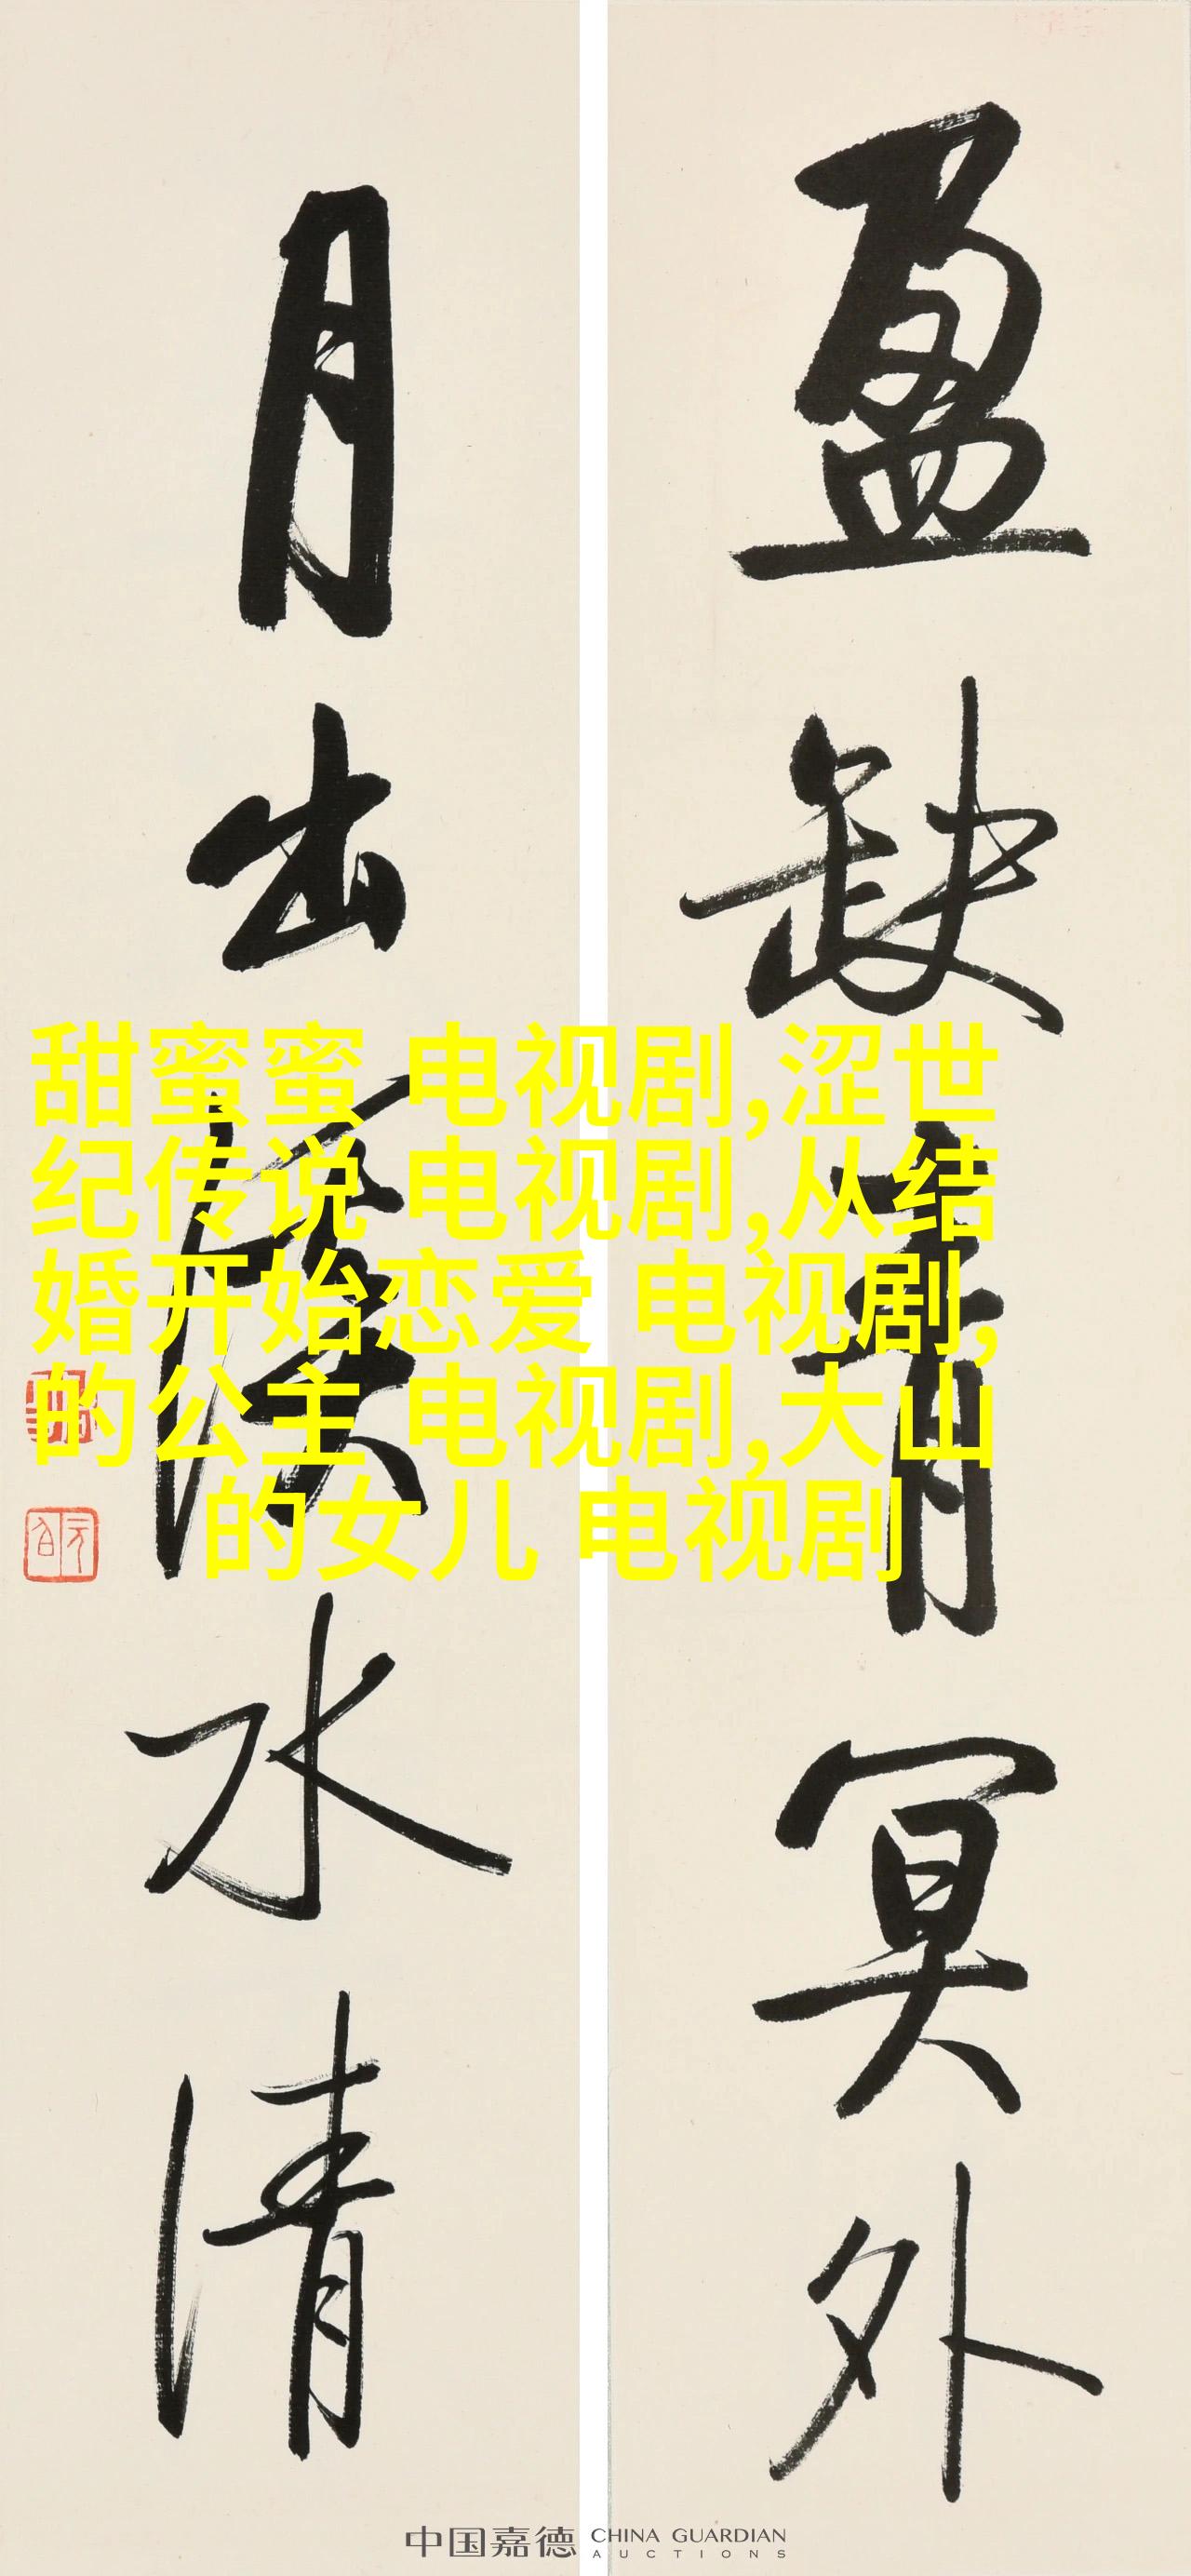 盈缺青冥外
月出
水清
甜蜜蜜 电视剧,涩世
纪传说 电视剧,从结
婚开始恋爱 电视剧,
的公主 电视剧,大山
的女儿 电视剧
中国嘉德 CHINA GUARDIAN
AUCTIONS